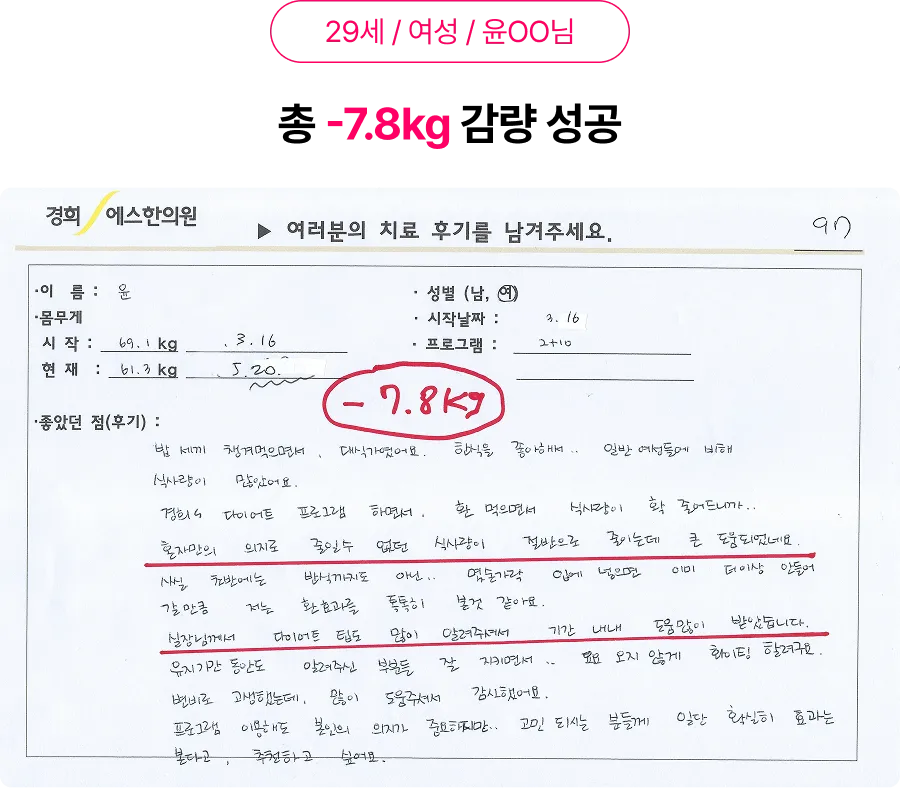 29세 / 여성 / 윤OO님
총 -7.8kg 감량 성공
경희 에스한의원
▶ 여러분의 치료 후기를 남겨주세요.
97
·이 름 : 윤
· 성별 (남, 여)
·몸무게
· 시작날짜 : 3. 16
시 작 : 69.1 kg . 3. 16
· 프로그램 : 2+10
현 재 : 61.3 kg . 5. 20.
-7.8kg
·좋았던 점(후기) :
밥 세끼 챙겨먹으면서, 대식가였어요. 한식을 좋아해서.. 일반 여성들에 비해
식사량이 많았어요.
경희S 다이어트 프로그램 하면서, 환 먹으면서 식사량이 확 줄어드니까..
혼자만의 의지로 줄일수 없던 식사량이 절반으로 줄이는데 큰 도움되었네요.
사실 초반에는 반식까지도 아닌.. 몇숟가락 입에 넣으면 이미 더이상 안들어
갈만큼 저는 환효과를 톡톡히 볼것 같아요.
실장님께서 다이어트 팁도 많이 알려주셔서 기간 내내 도움많이 받았습니다.
유지기간 동안도 알려주신 부분들 잘 지키면서.. 요요 오지 않게 화이팅 할려구요.
변비로 고생했는데, 많이 도움주셔서 감사했어요.
프로그램 이용해도 본인의 의지가 중요하지만.. 고민 되시는 분들께 일단 확실히 효과는
본다고, 추천하고 싶어요.